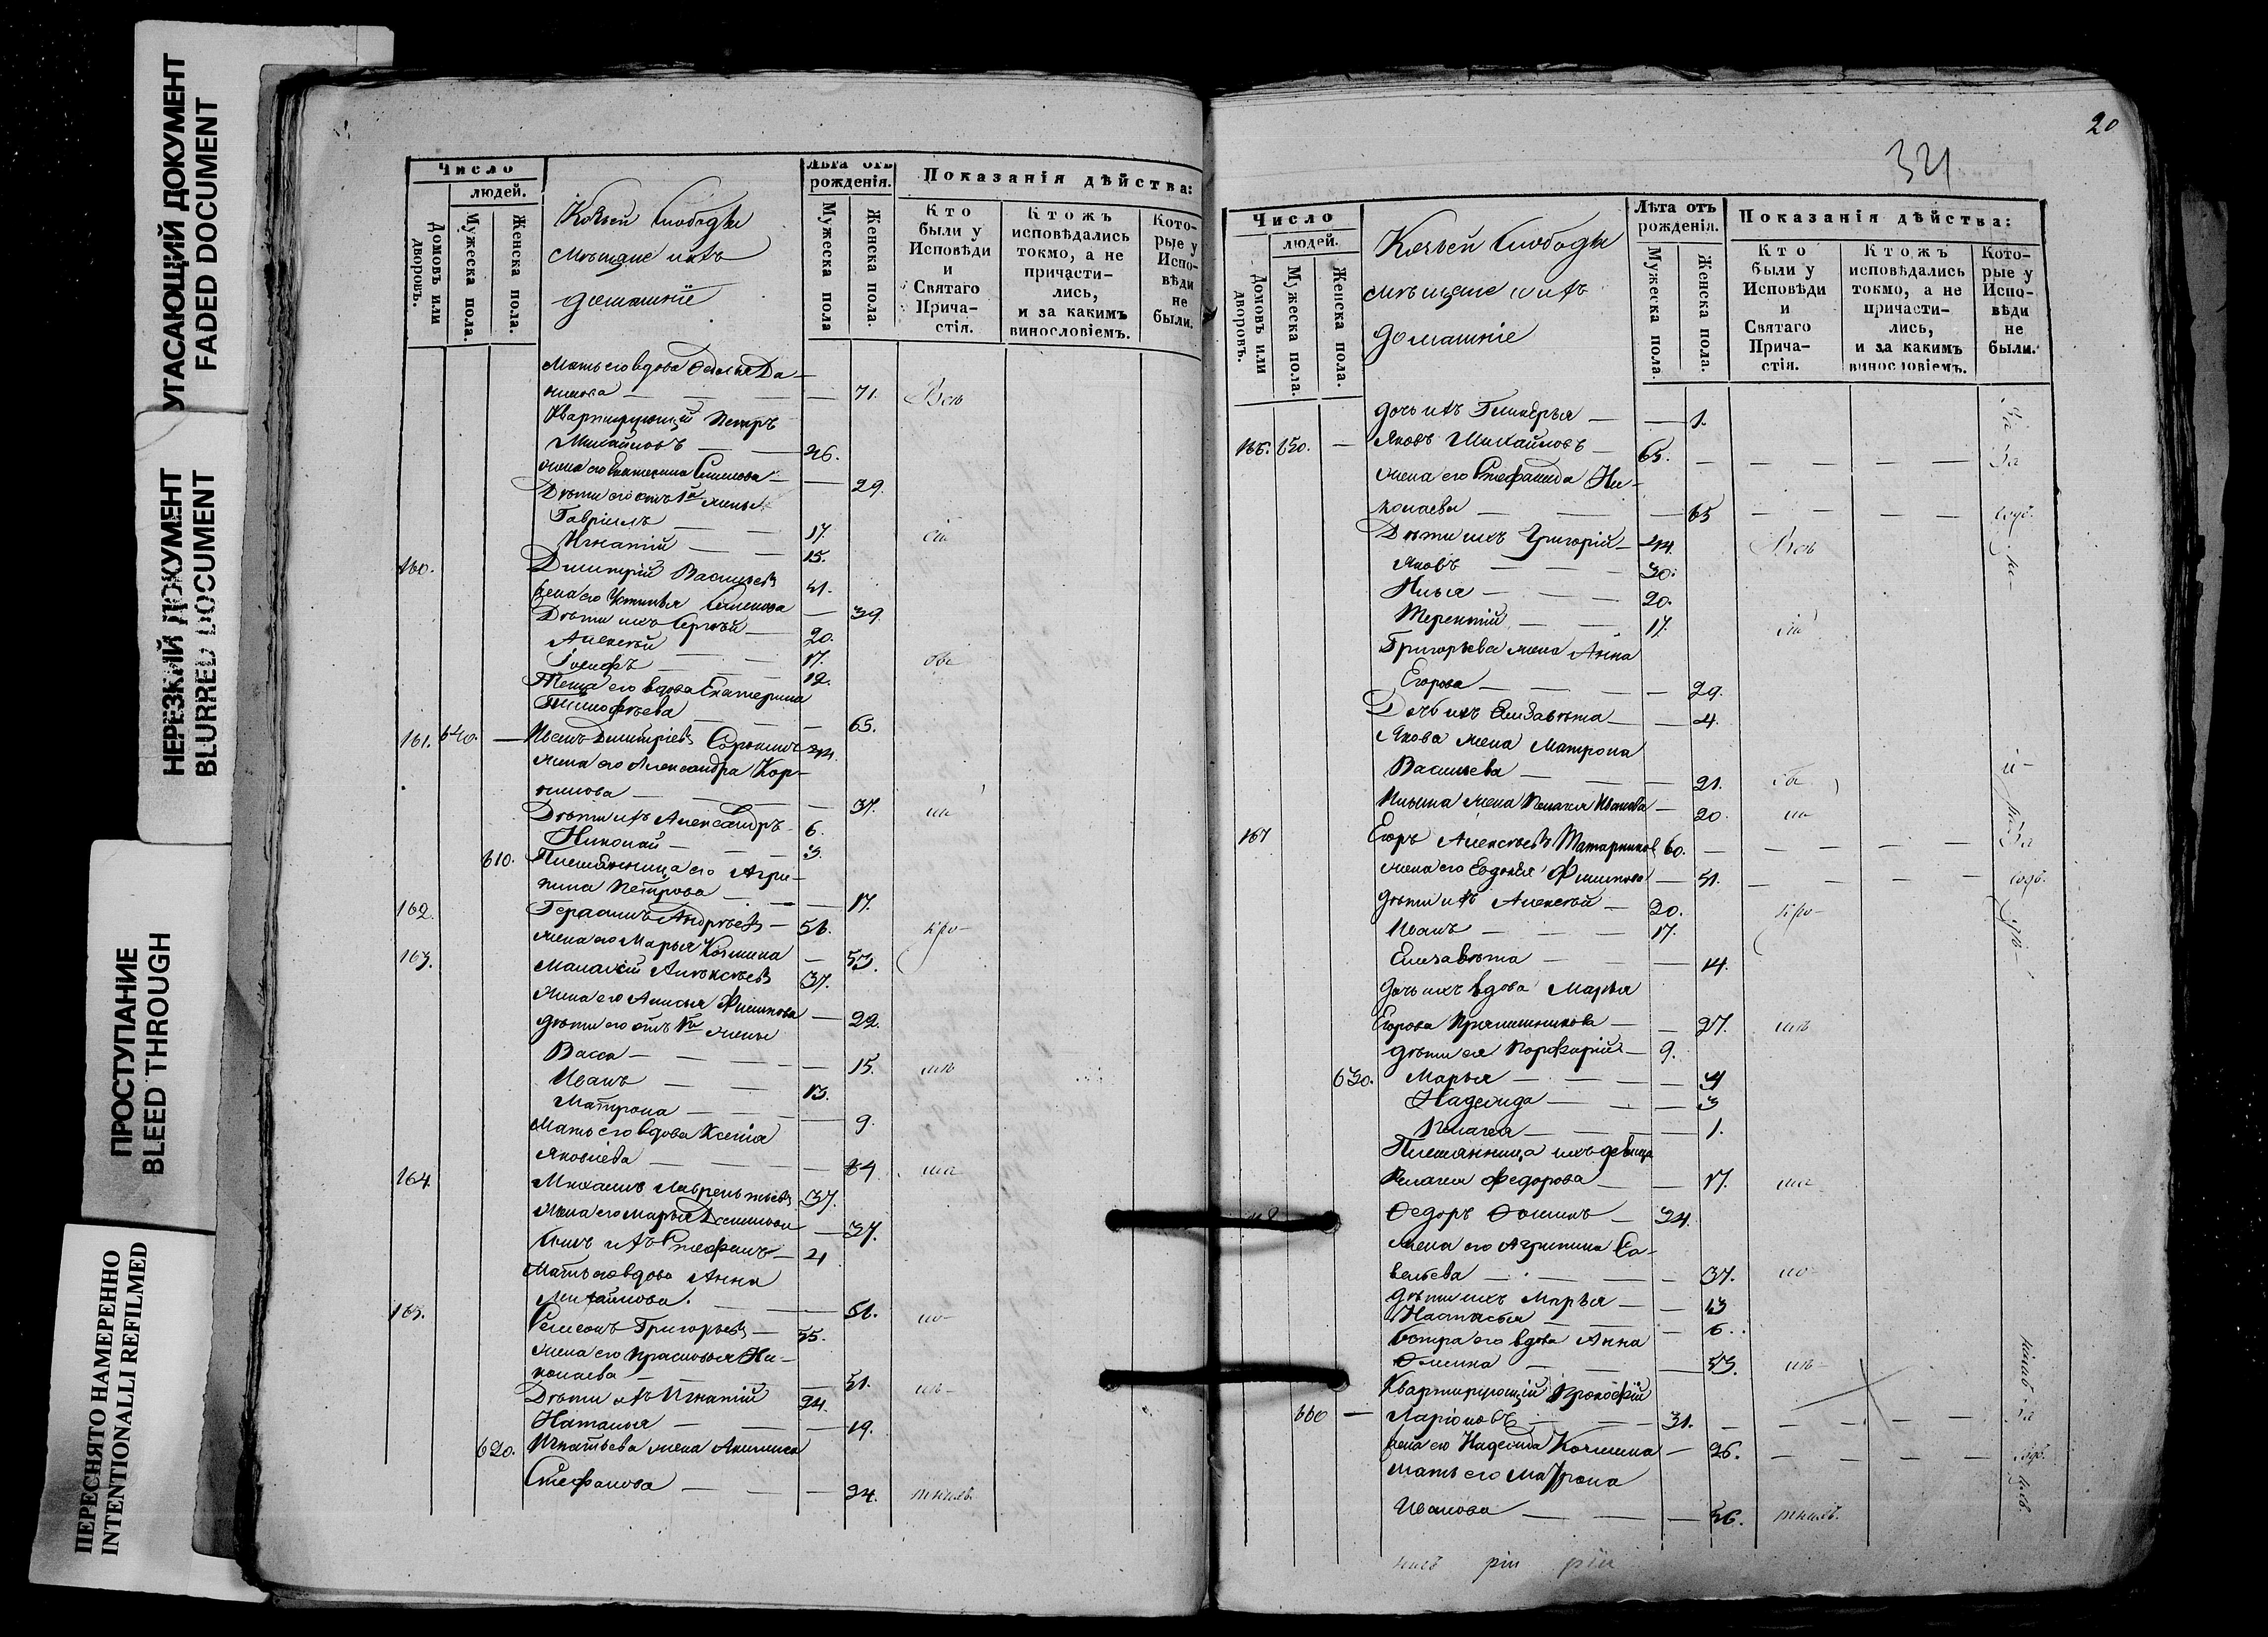 УГАСАЮЩИЙ ДОКУМЕНТ
FADED DOCUMENT
НЕРЕЗКИЙ ДОКУМЕНТ
BLURRED DOCUMENT
ПРОСТУПАНИЕ
BLEED THROUGH
ПЕРЕСНЯТО НАМЕРЕННО
INTENTIONALLI REFILMED
Число
людей.
Домовъ или дворовъ.
Мужеска пола.
Женска пола.
слободы
мѣщане и ихъ
домашніе
Лѣта отъ рожденія.
Мужеска пола
Женска пола.
Показанія дѣйства:
Кто были у Исповѣди и Святаго Прича-стія.
Ктожъ исповѣдались токмо, а не причасти-лись, и за какимъ винословіемъ.
Кото-рые у Испо-вѣди не были.
Мать его вдова Да-
нилова — 71. Всѣ
Квартирующій Петръ
Михайловъ — 26.
жена его Екатерина — 29.
Дѣти его отъ 1й жены
Гавріилъ — 17.
Игнатій — 15.
160. Димитрій Васильевъ 41.
жена его Устинья Семенова — 39.
Дѣти ихъ Сергѣй — 20.
Алексѣй — 17.
Іосифъ — 12.
Теща его вдова Екатерина
Тимофѣева — 65.
161. 640. — Иванъ Димитріевъ Сорокинъ 44.
жена его Александра Кор-
нилова — 37.
Дѣти ихъ Александръ 6.
Николай — 3.
610. Племянница его Агри-
пина Петрова — 17.
162. Герасимъ Андреевъ — 56. кро-
жена его Марья Козмина — 53.
163. Малахій Алексѣевъ 37.
жена его Анисья Филипова — 22.
дѣти его отъ 1й жены
Васса — 15.
Иванъ — 13.
Матрона — 9.
Мать его вдова Ксенія
Яковлева — 64
164. Михаилъ Лаврентьевъ 37.
жена его Марья — 37.
Сынъ ихъ Стефанъ — 21
Мать его вдова Анна
Михайлова. — 61.
165. Семеонъ Григорьевъ — 55.
жена его Прасковья Ни-
колаева — 51.
Дѣти ихъ Игнатій 24.
Наталья — 19.
620. Игнатьева жена Акилина
Стефанова — 24.
20
321
Число
людей.
Домовъ или дворовъ.
Мужеска пола.
Женска пола.
слободы
мѣщане и ихъ
домашніе
Лѣта отъ рожденія.
Мужеска пола.
Женска пола.
Показанія дѣйства:
Кто были у Исповѣди и Святаго Прича-стія.
Ктожъ исповѣдались токмо, а не причасти-лись, и за какимъ винословіемъ.
Кото-рые у Испо-вѣди не были.
дочь ихъ Гликерья — 1. За
166. 650. — Яковъ Михайловъ — 65. За
жена его Стефанида Ни-
колаева — 65
Дѣти ихъ Григорій — 44. Всѣ
Яковъ — 30.
Илья — 20.
Терентій — 17.
Григорьева жена Анна
Егорова — 29.
Дочь ихъ Елизавѣта — 4.
Якова жена Матрона
Васильева — 21.
Ильина жена Пелагея Иванова — 20.
167 Егоръ Алексѣевъ Татарников 60. — За
жена его Евдокія Филипова — 51.
дѣти ихъ Алексѣй — 20. кро-
Иванъ — 17.
Елизавѣта — 14.
дочь ихъ вдова Марья
Егорова Прянишникова — 27.
дѣти ея Порфирій — 9.
630. Марья — 4
Надежда — 3
Пелагея — 1.
Племянница ихъ девица
Пелагея Федорова — 17.
Ѳедоръ Ѳоминъ — 34.
жена его Агрипина Са-
вельева — 37.
дѣти ихъ Марья — 13
Настасья — 6.
Сестра его вдова Анна
Ѳомина — 53.
Квартирующій Прокофій
660 — Ларіоновъ — 31. — За
жена его Надежда Козмина — 26.
мать его Матрона
Иванова — 56.